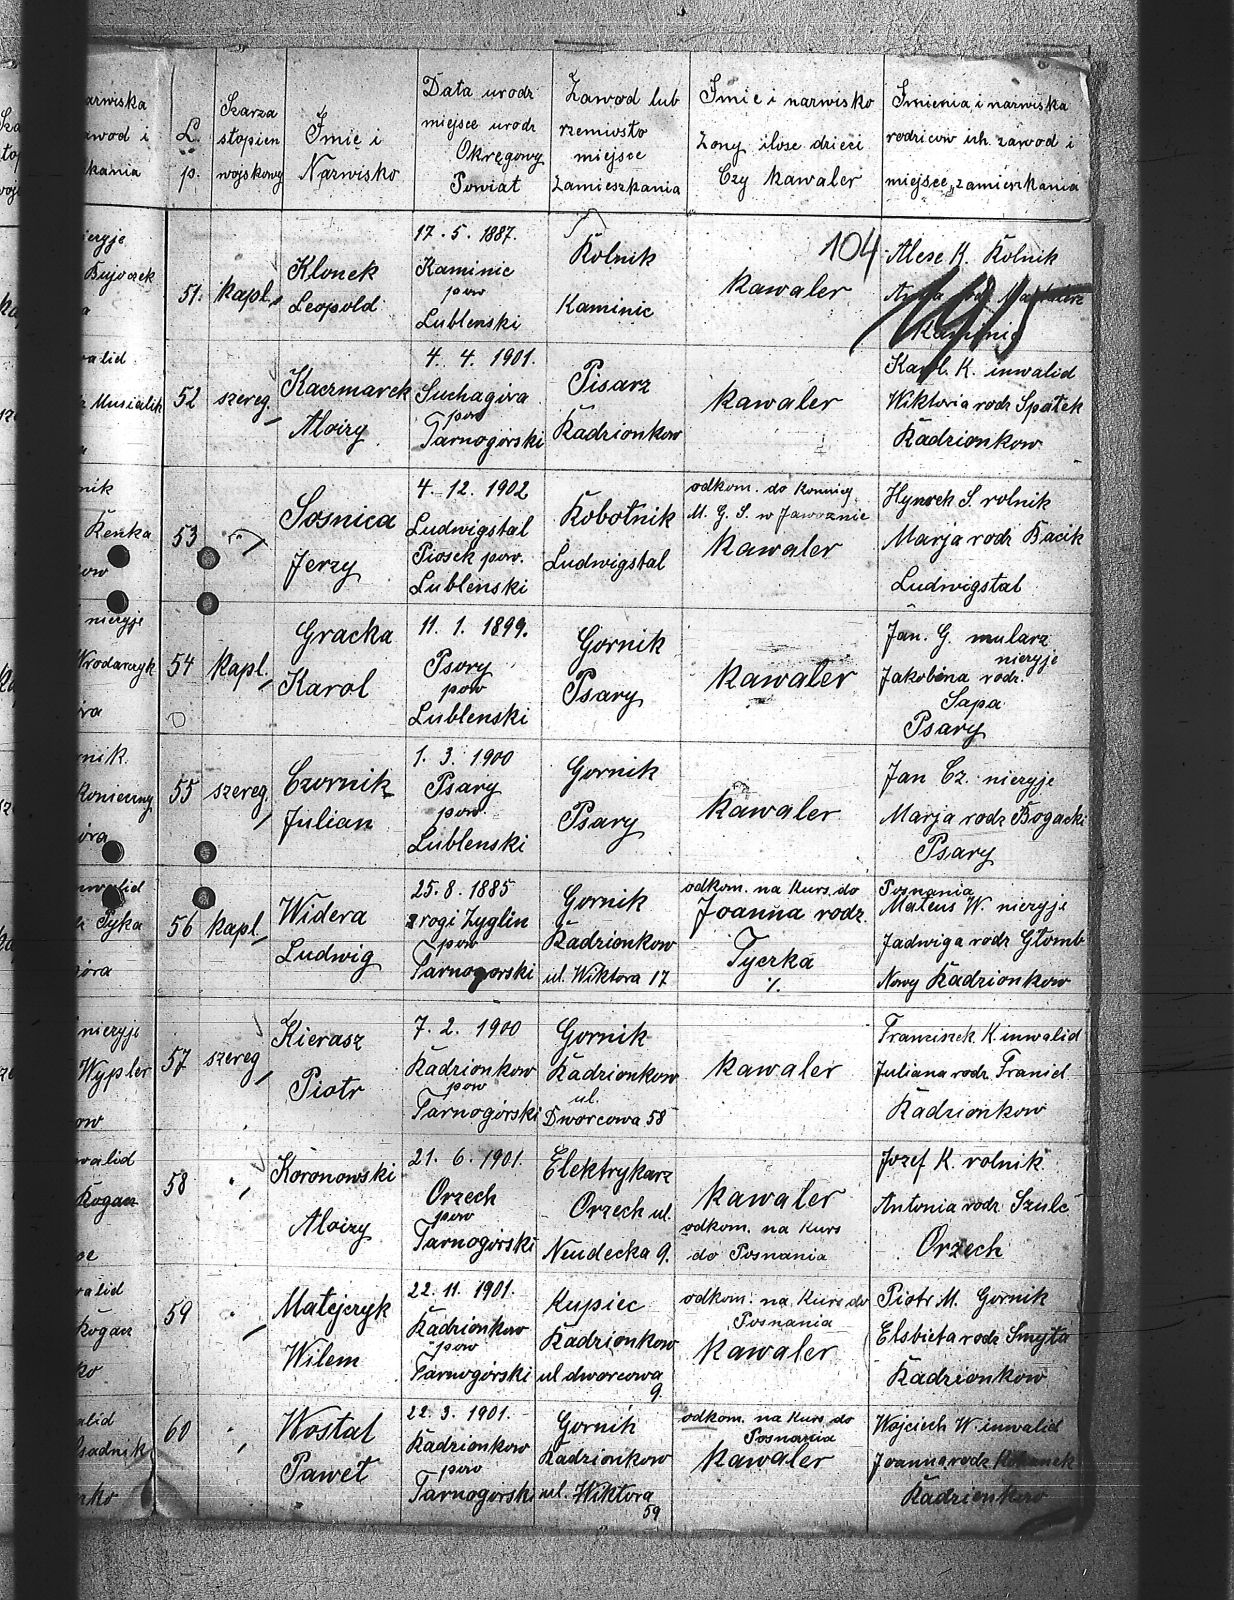 L. p.
Szarza stopien wojskowy
Imie i Nazwisko
Data urodz miejsce urodz Okręgowy Powiat
Zawod lub rzemiosto miejsce Zamieszkania
Imie i nazwisko Zony ilosc dzieci Czy kawaler
Imienia i nazwiska rodzicow ich zawod i miejsce zamieszkania
104
51.
kapl.
Klonek
Leopold
17. 5. 1887.
Kaminic
pow
Lublenski
Rolnik
Kaminic
kawaler
K. Rolnik
52
szereg.
Kaczmarek
Aloizy
4. 4. 1901.
Suchagóra
pow
Tarnogorski
Pisarz
Radzionkow
kawaler
Karol K. inwalid
Wiktoria rodz Spatek
Radzionkow
53
Sosnica
Jerzy
4. 12. 1902
Ludwigstal
Piosek pow.
Lublenski
Robotnik
Ludwigstal
odkom. do
M. G. S. w Jaworznie
kawaler
S. rolnik
Marja rodz Bacik
Ludwigstal
54
kapl.
Gracka
Karol
11. 1. 1899.
Psory
pow
Lublenski
Gornik
Psary
kawaler
Jan. G. mularz
niezyje
Jakobina rodz.
Sapa
Psary
55
szereg.
Czornik
Julian
1. 3. 1900
Psary
pow
Lublenski
Gornik
Psary
kawaler
Jan Cz. niezyje
Marja rodz Bogacki
Psary
56
kapl.
Widera
Ludwig
25. 8. 1885
rogi Zyglin
pow
Tarnogorski
Gornik
Radzionkow
ul. Wiktora 17
odkom. na kurs do
Posnania
Joanna rodz.
Tyczka
1.
Mateus W. niezyje
Jadwiga rodz Głomb
Nowy Radzionkow
57
szereg
Kierasz
Piotr
7. 2. 1900
Radzionkow
pow
Tarnogórski
Gornik
Radzionkow
ul.
Dworcowa 58
kawaler
Franciszek K inwalid
Juliana rodz Franiel
Radzionkow
58
Koronowski
Aloizy
21. 6. 1901.
Orzech
pow
Tarnogórski
Elektrykarz
Orzech ul.
Neudecka 9.
kawaler
odkom. na kurs
do Posnania
Jozef K. rolnik
Antonia rodz. Szulc
Orzech
59
Matejczyk
Wilem
22. 11. 1901.
Radzionkow
pow
Tarnogórski
Kupiec
Radzionkow
ul dworcowa
9.
odkom. na kurs do
Posnania
kawaler
Piotr M. Gornik
Elsbieta rodz Smyta
Radzionkow
60
Wostal
Paweł
22. 3. 1901.
Radzionkow
pow
Tarnogorski
Gornik
Radzionkow
ul. Wiktora
59
odkom. na kurs do
Posnania
kawaler
Wojciech W inwalid
Joanna rodz
Radzionkow